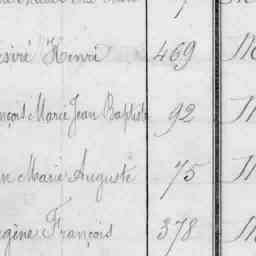 ésiré Henri 469 M
nçois Marie Jean Baptiste 92 M
n Marie Auguste 75 M
gène François 378 M